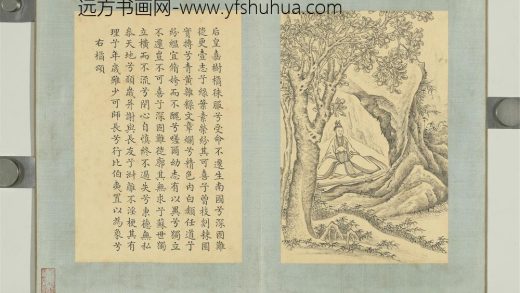 远方书画网-www.yfshuhua.com
后皇嘉樹橘徠服兮受命不遷生南國兮深固難
徙更壹志兮綠葉素榮紛其可喜兮曾枝剡棘圓
實摶兮青黃雜糅文章爛兮精色內白類任道兮
紛縕宜脩姱而不醜兮嗟爾幼志有以異兮獨立
不遷豈不可喜兮深固難徙廓其無求兮蘇世獨
立橫而不流兮閉心自慎終不過失兮秉德無私
參天地兮願歲并謝與長友兮淑離不淫梗其有
理兮年歲雖少可師長兮行比伯夷置以為象兮
右橘頌